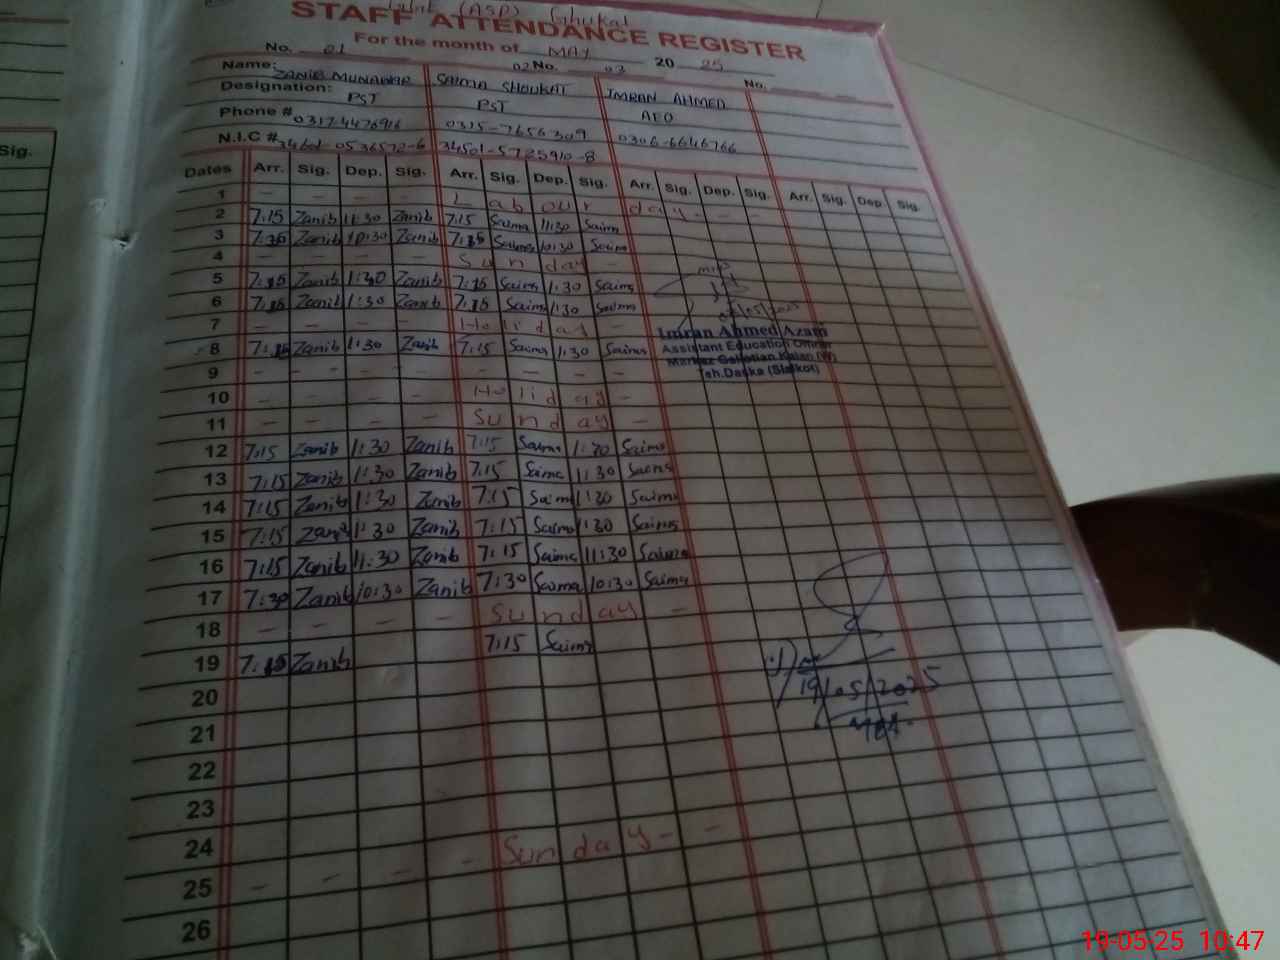 (ASP) Ghukal
STAFF ATTENDANCE REGISTER
For the month of MAY 2025
No. 01 02 No. 03 No.
Name: ZANIB MUNAWAR SAIMA SHOUKAT IMRAN AHMED
Designation: PST PST AEO
Phone # 0317-4476916 0315-7656309 0306-6646766
N.I.C # 34601-0536570-6 34501-5725910-8
Sig.
Dates Arr. Sig. Dep. Sig. Arr. Sig. Dep. Sig. Arr. Sig. Dep. Sig. Arr. Sig. Dep. Sig.
1 - - - - Labour day - - -
2 7:15 Zanib 11:30 Zanib 7:15 Saima 11:30 Saima
3 Zanib 10:30 Zanib Saima 10:30 Saima
4 - - - - Sunday -
5 7:15 Zanib 1:30 Zanib 7:15 Saima 1:30 Saima
6 7:15 Zanib 1:30 Zanib 7:15 Saima 1:30 Saima
7 - - - - Holiday -
8 7:15 Zanib 1:30 Zanib 7:15 Saima 1:30 Saima
9 - - - - - - - -
10 Holiday -
11 - Sunday -
12 7:15 Zanib 1:30 Zanib 7:15 Saima 1:30 Saima
13 7:15 Zanib 1:30 Zanib 7:15 Saima 1:30 Saima
14 7:15 Zanib 1:30 Zanib 7:15 Saima 1:30 Saima
15 7:15 Zanib 1:30 Zanib 7:15 Saima 1:30 Saima
16 7:15 Zanib 11:30 Zanib 7:15 Saima 11:30 Saima
17 7:30 Zanib 10:30 Zanib 7:30 Saima 10:30 Saima
18 - - - - Sunday -
19 7:15 Zanib 7:15 Saima
20
21
22
23
24
25 - - - - Sunday - -
26
Imran Ahmed Azam
Assistant Education Officer
Markaz Galotian Kalan (W)
Teh.Daska (Sialkot)
19/05/2025
MEA
19-05-25 10:47